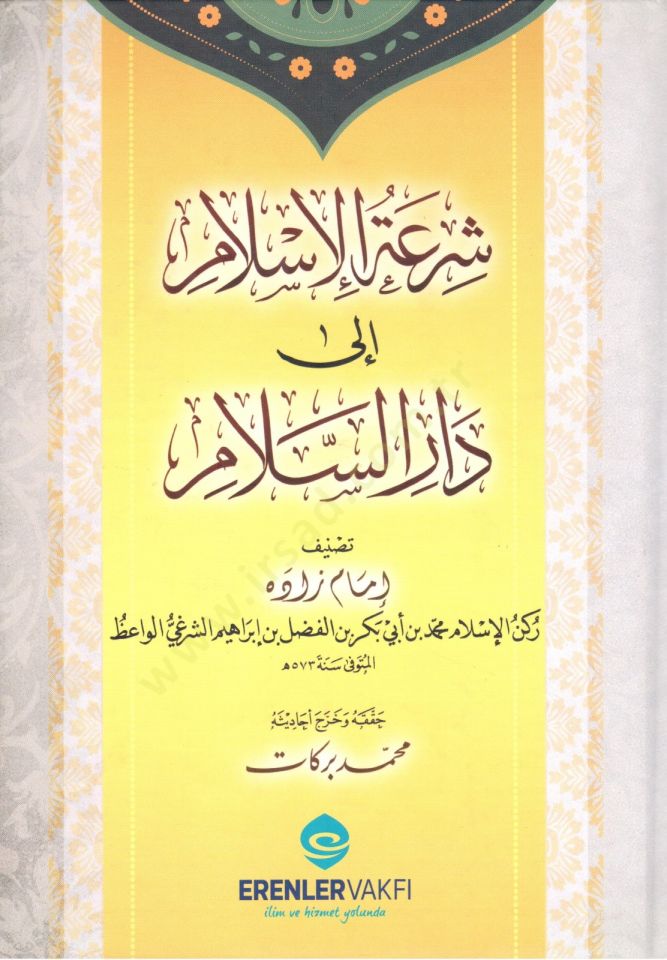 شِرعَةُ الإِسْلامِ
إلى
دَارِ السَّلامِ
تصْنيف
إمَام زاده
رُكنُ الإسلام محمد بن أبي بكر بن الفضل بن إبراهيم الشرغيُّ الواعظُ
المتوفى سَنَة ٥٧٣ه
حَقّقهُ وَخَرّجَ أحَاديثهُ
محمّد بركات
ERENLERVAKFI
ilim ve hizmet yolunda
www.irsad.com.tr